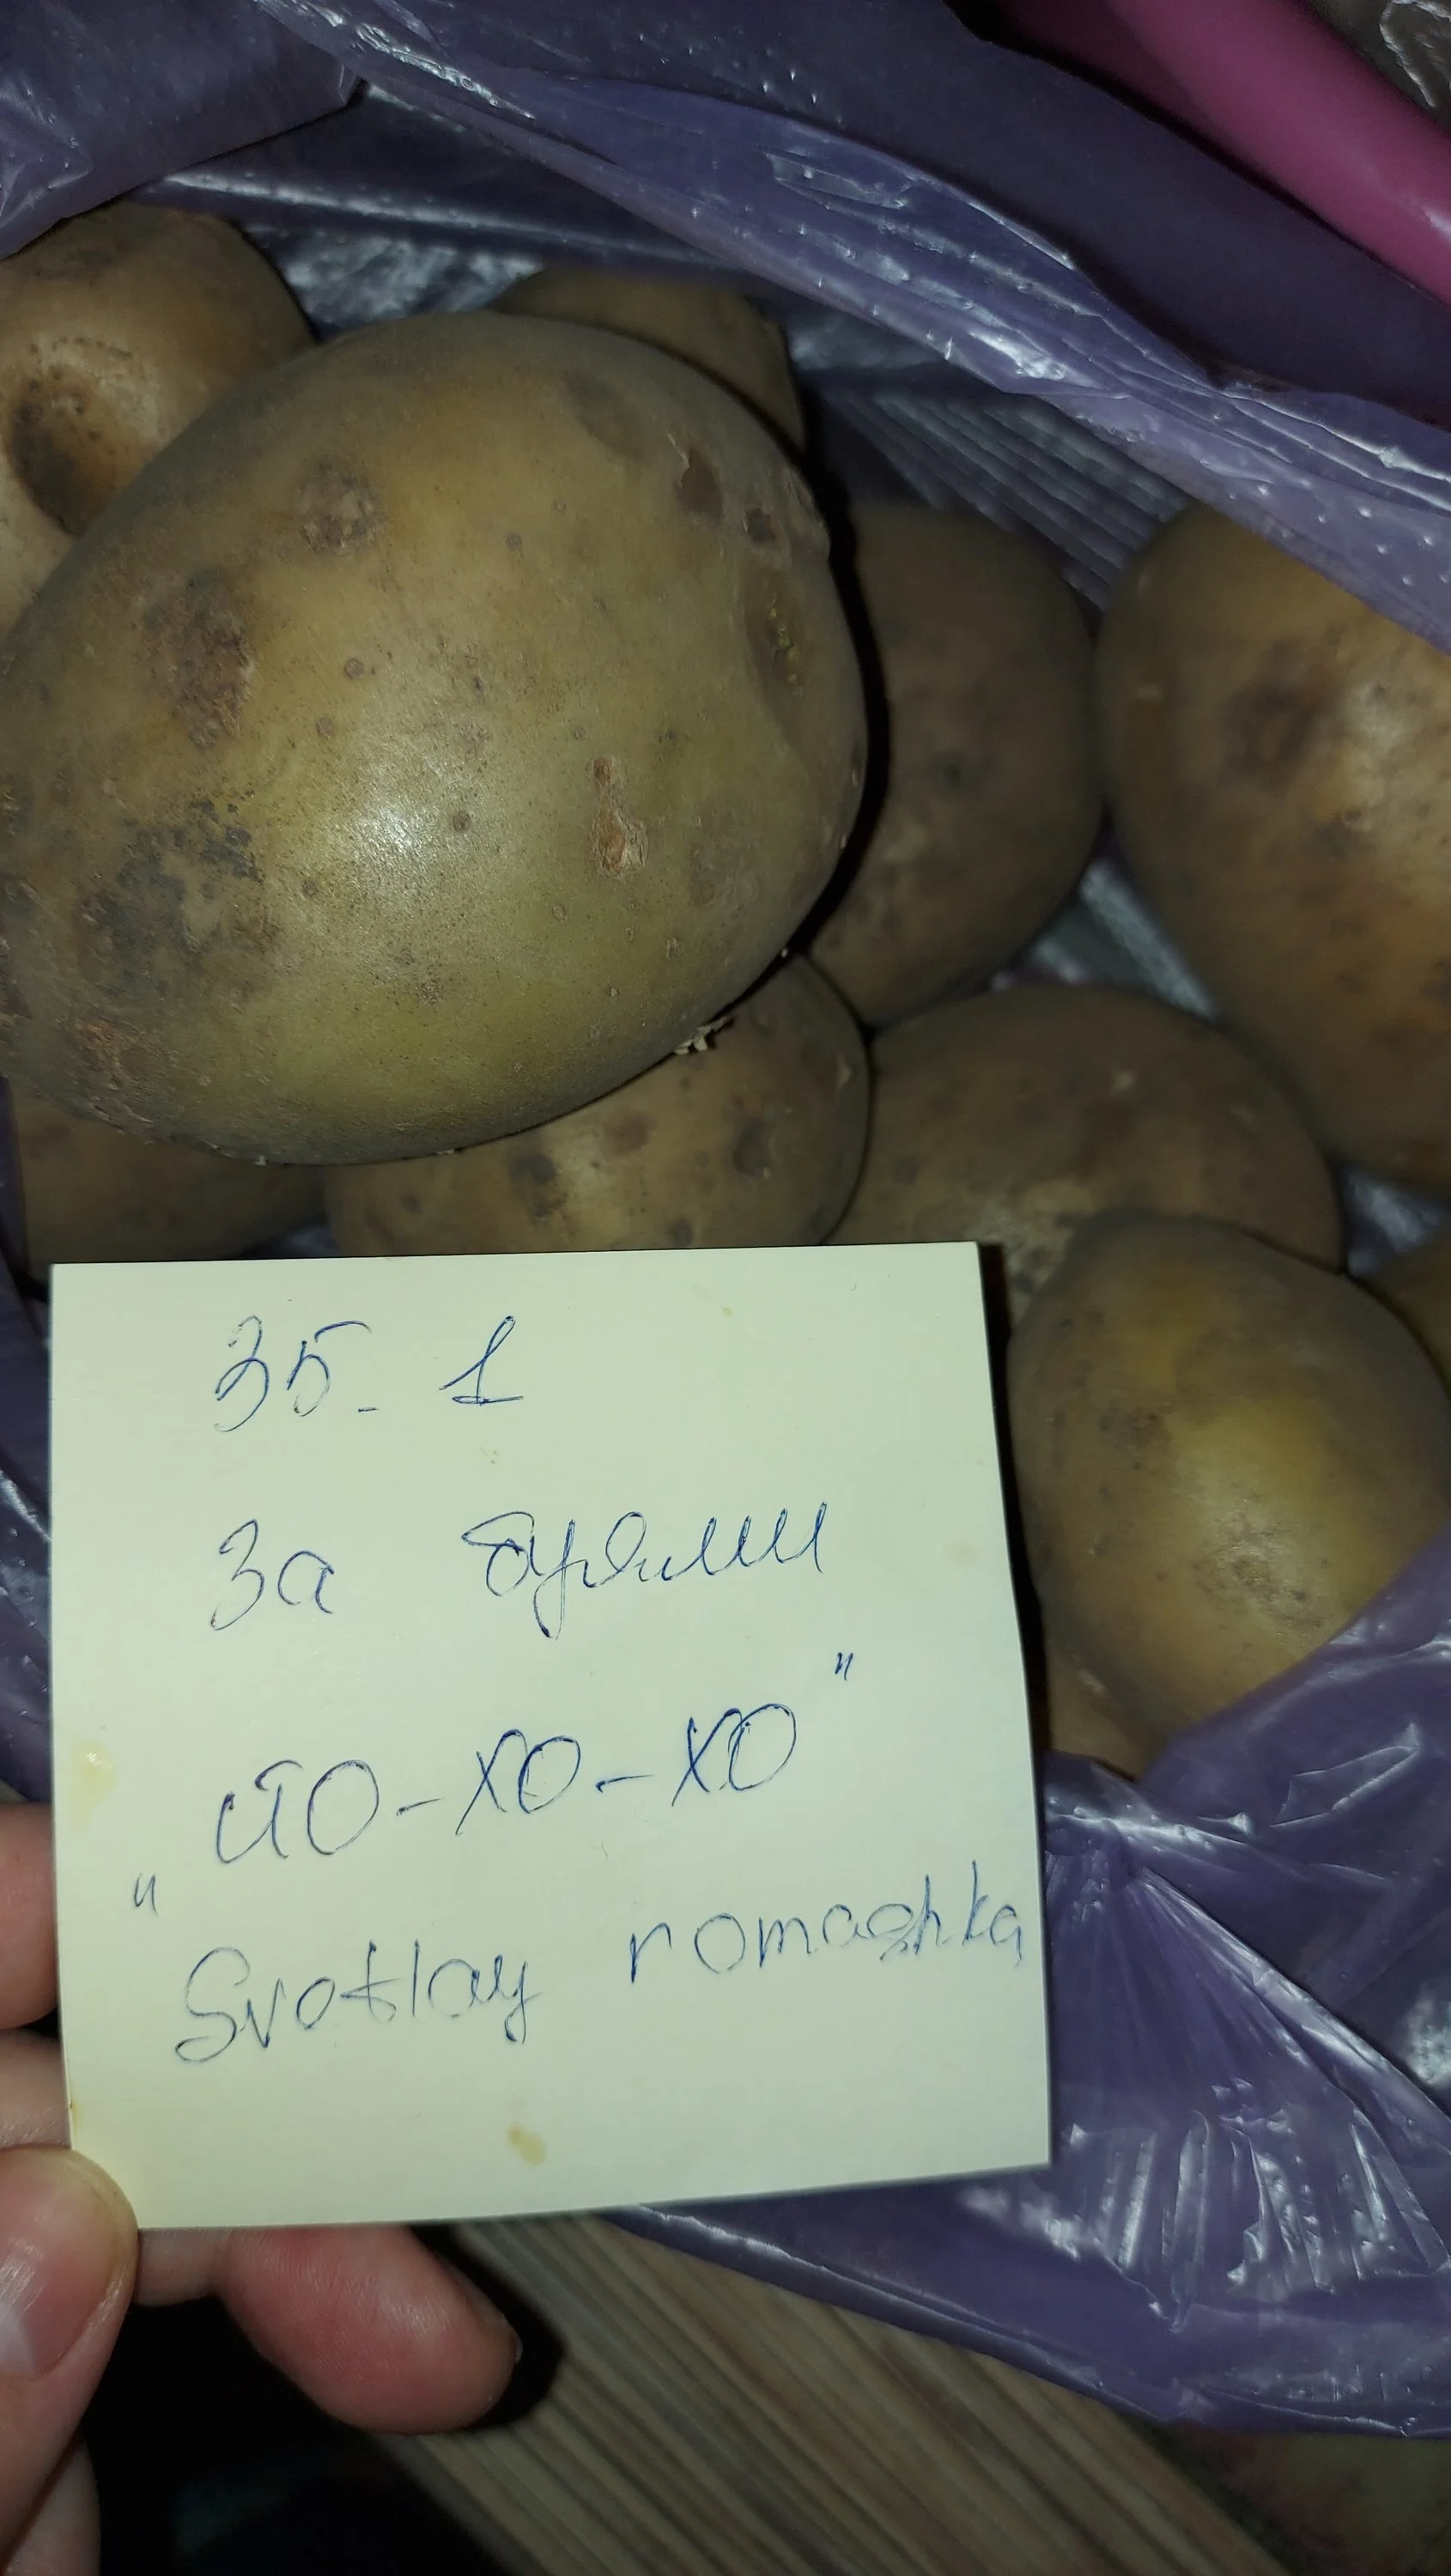 ЗБ-1
За буями
"ЙО-ХО-ХО"
Svetlay romashka